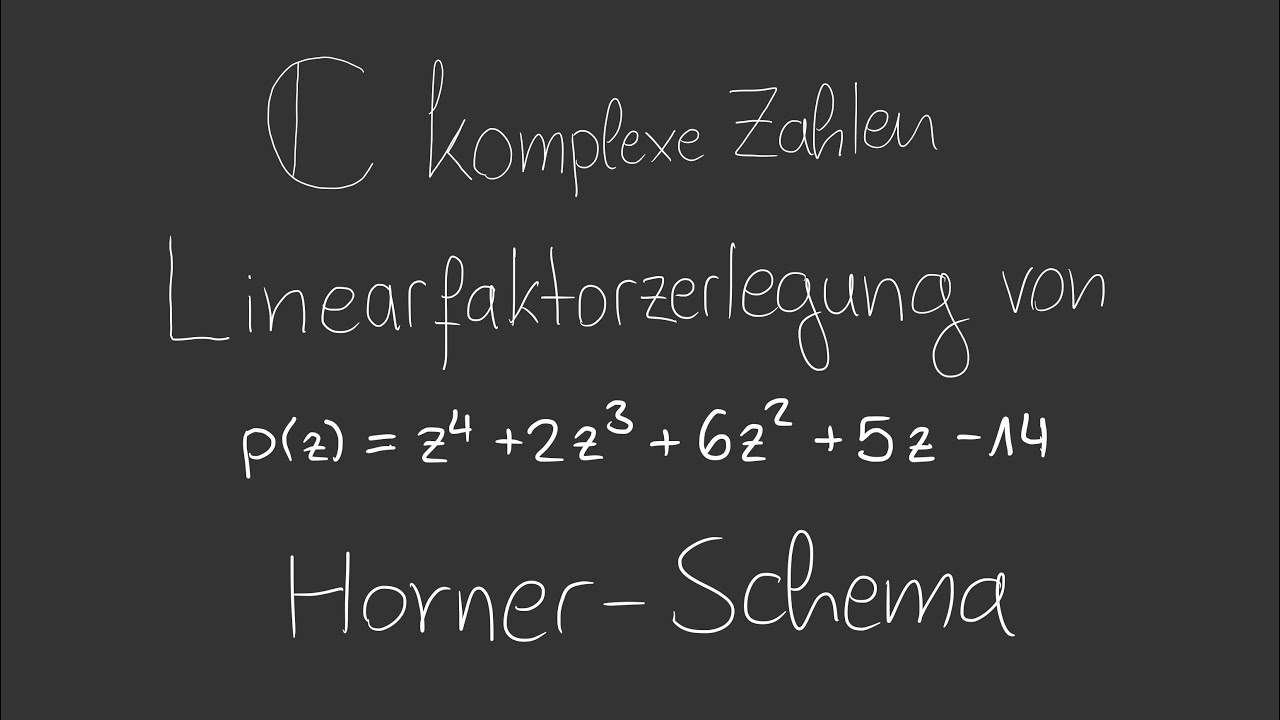 ℂ komplexe Zahlen
Linearfaktorzerlegung von
p(z) = z⁴ + 2z³ + 6z² + 5z - 14
Horner-Schema